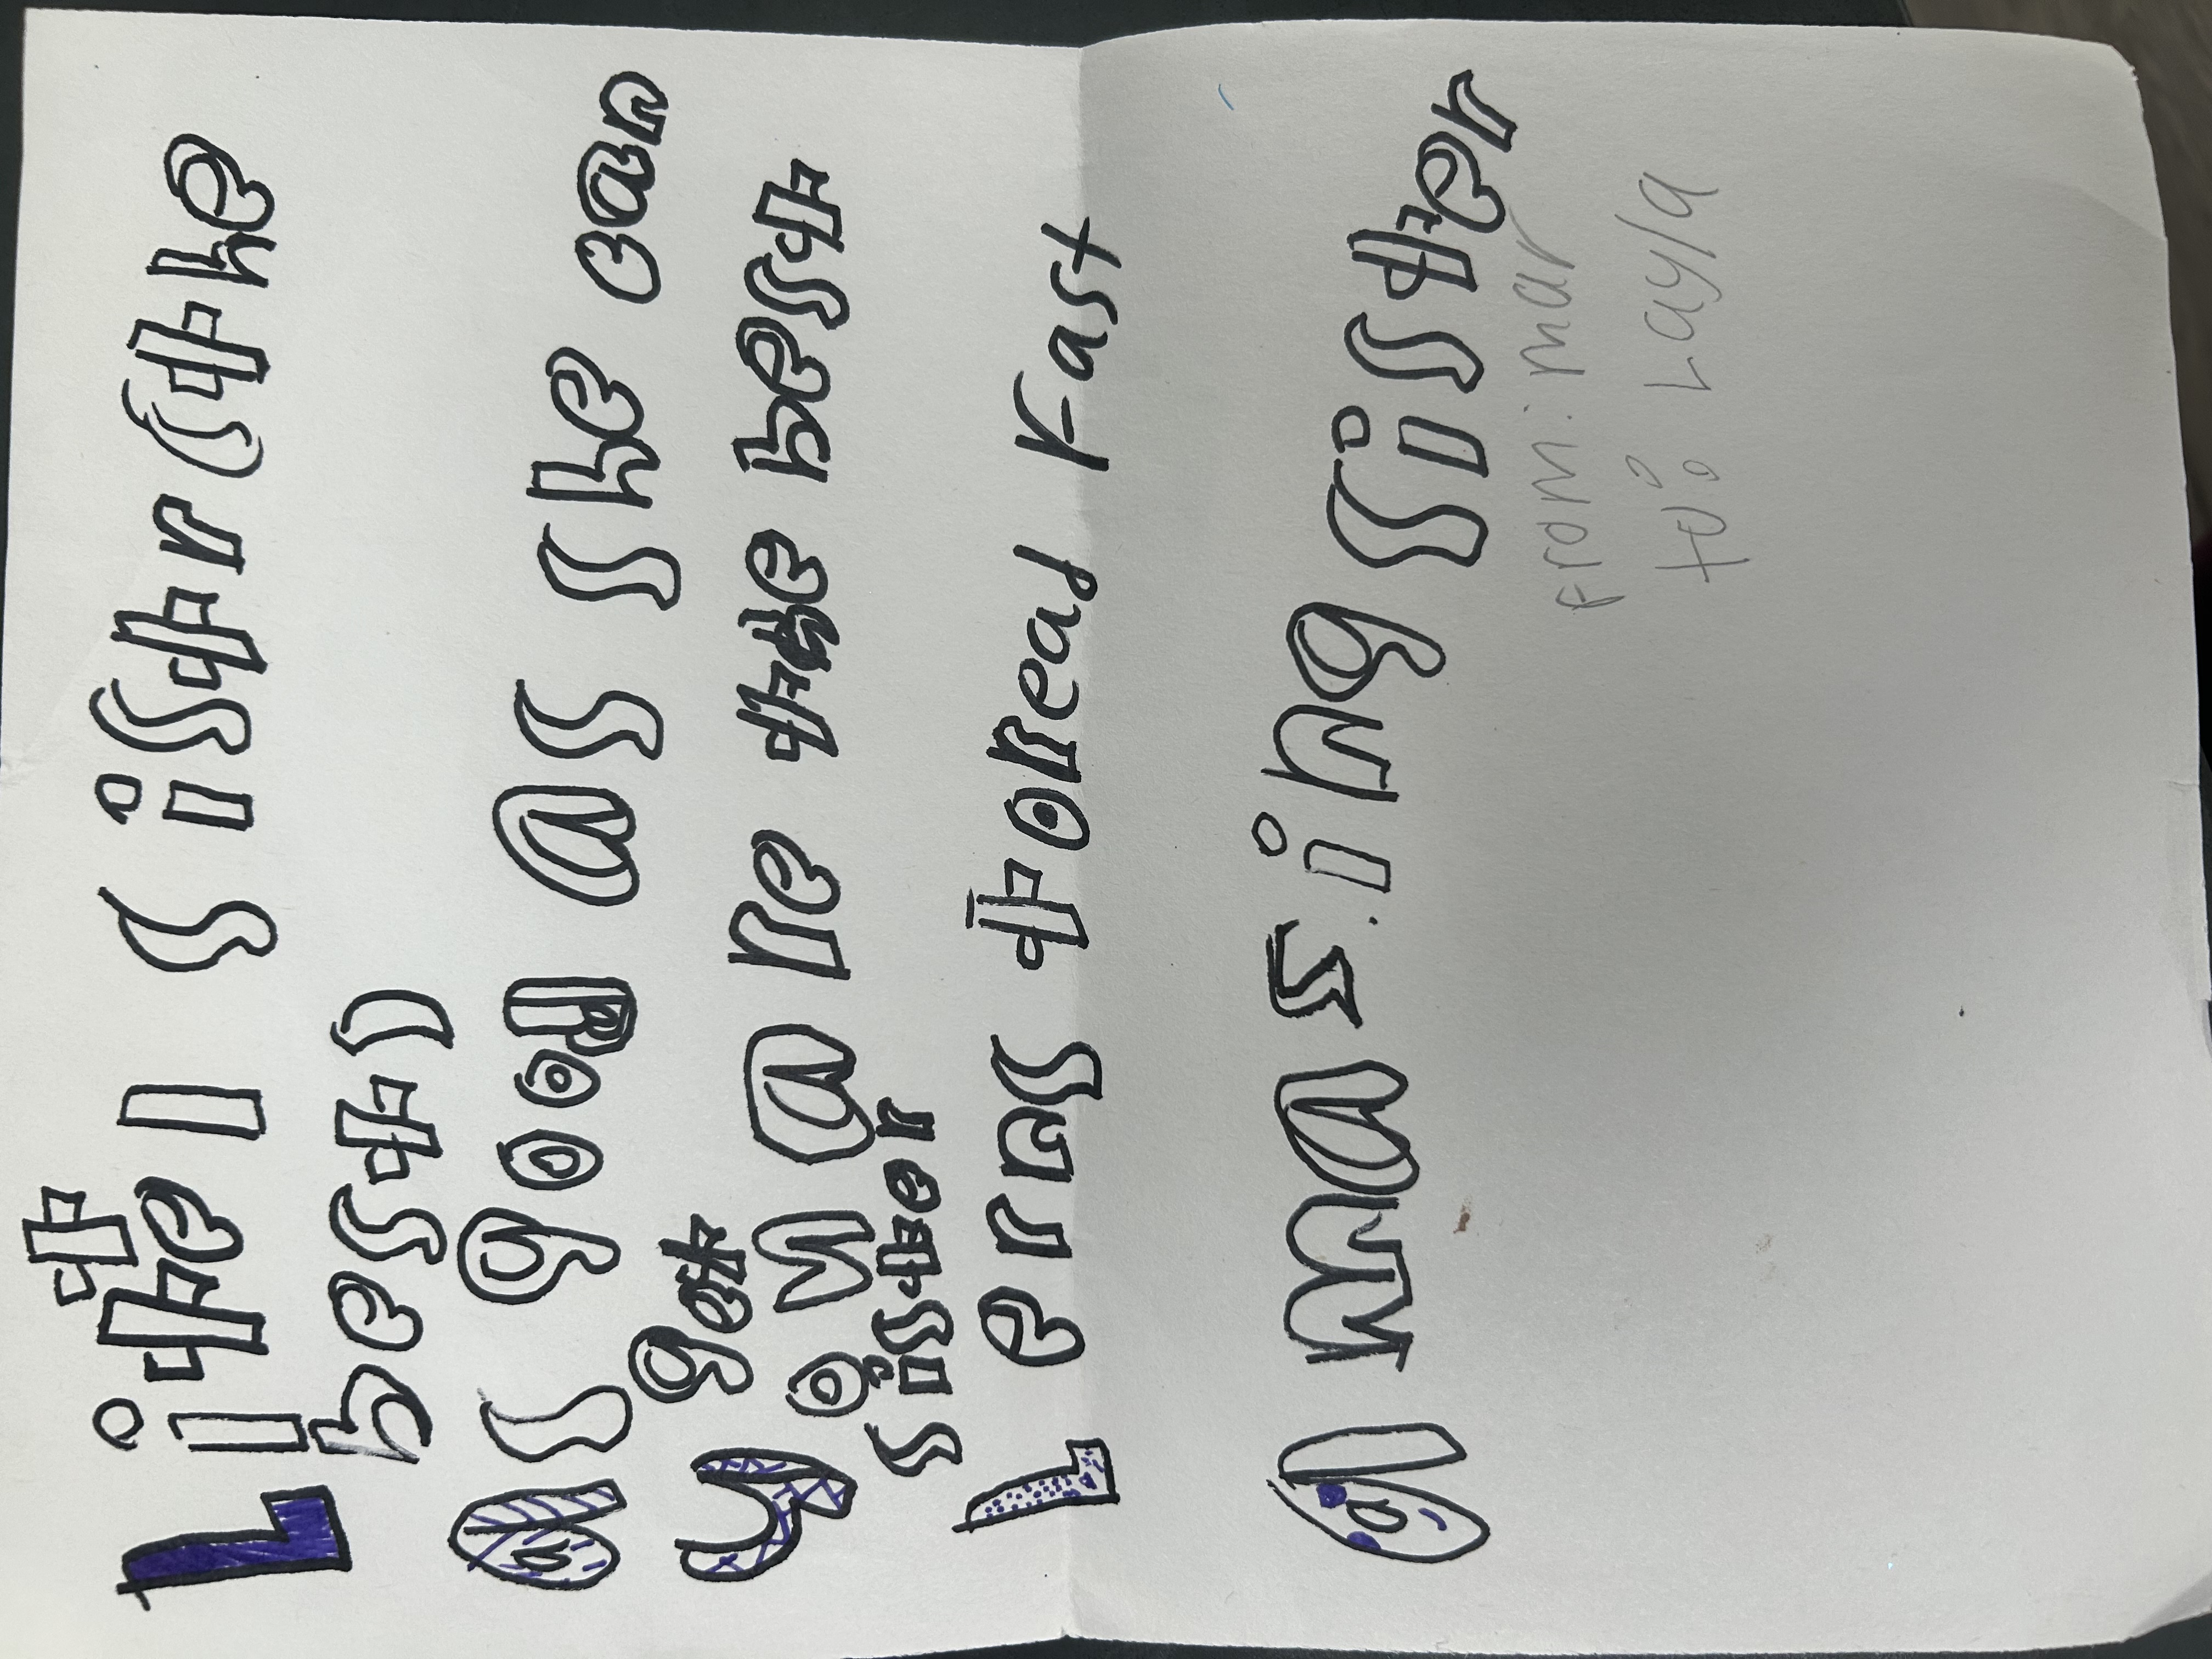 Littel sistr (the
best)
as good as she can
get
You are the best
sister
Lerns to read Fast
amazing sister
From: mar
to: Layla